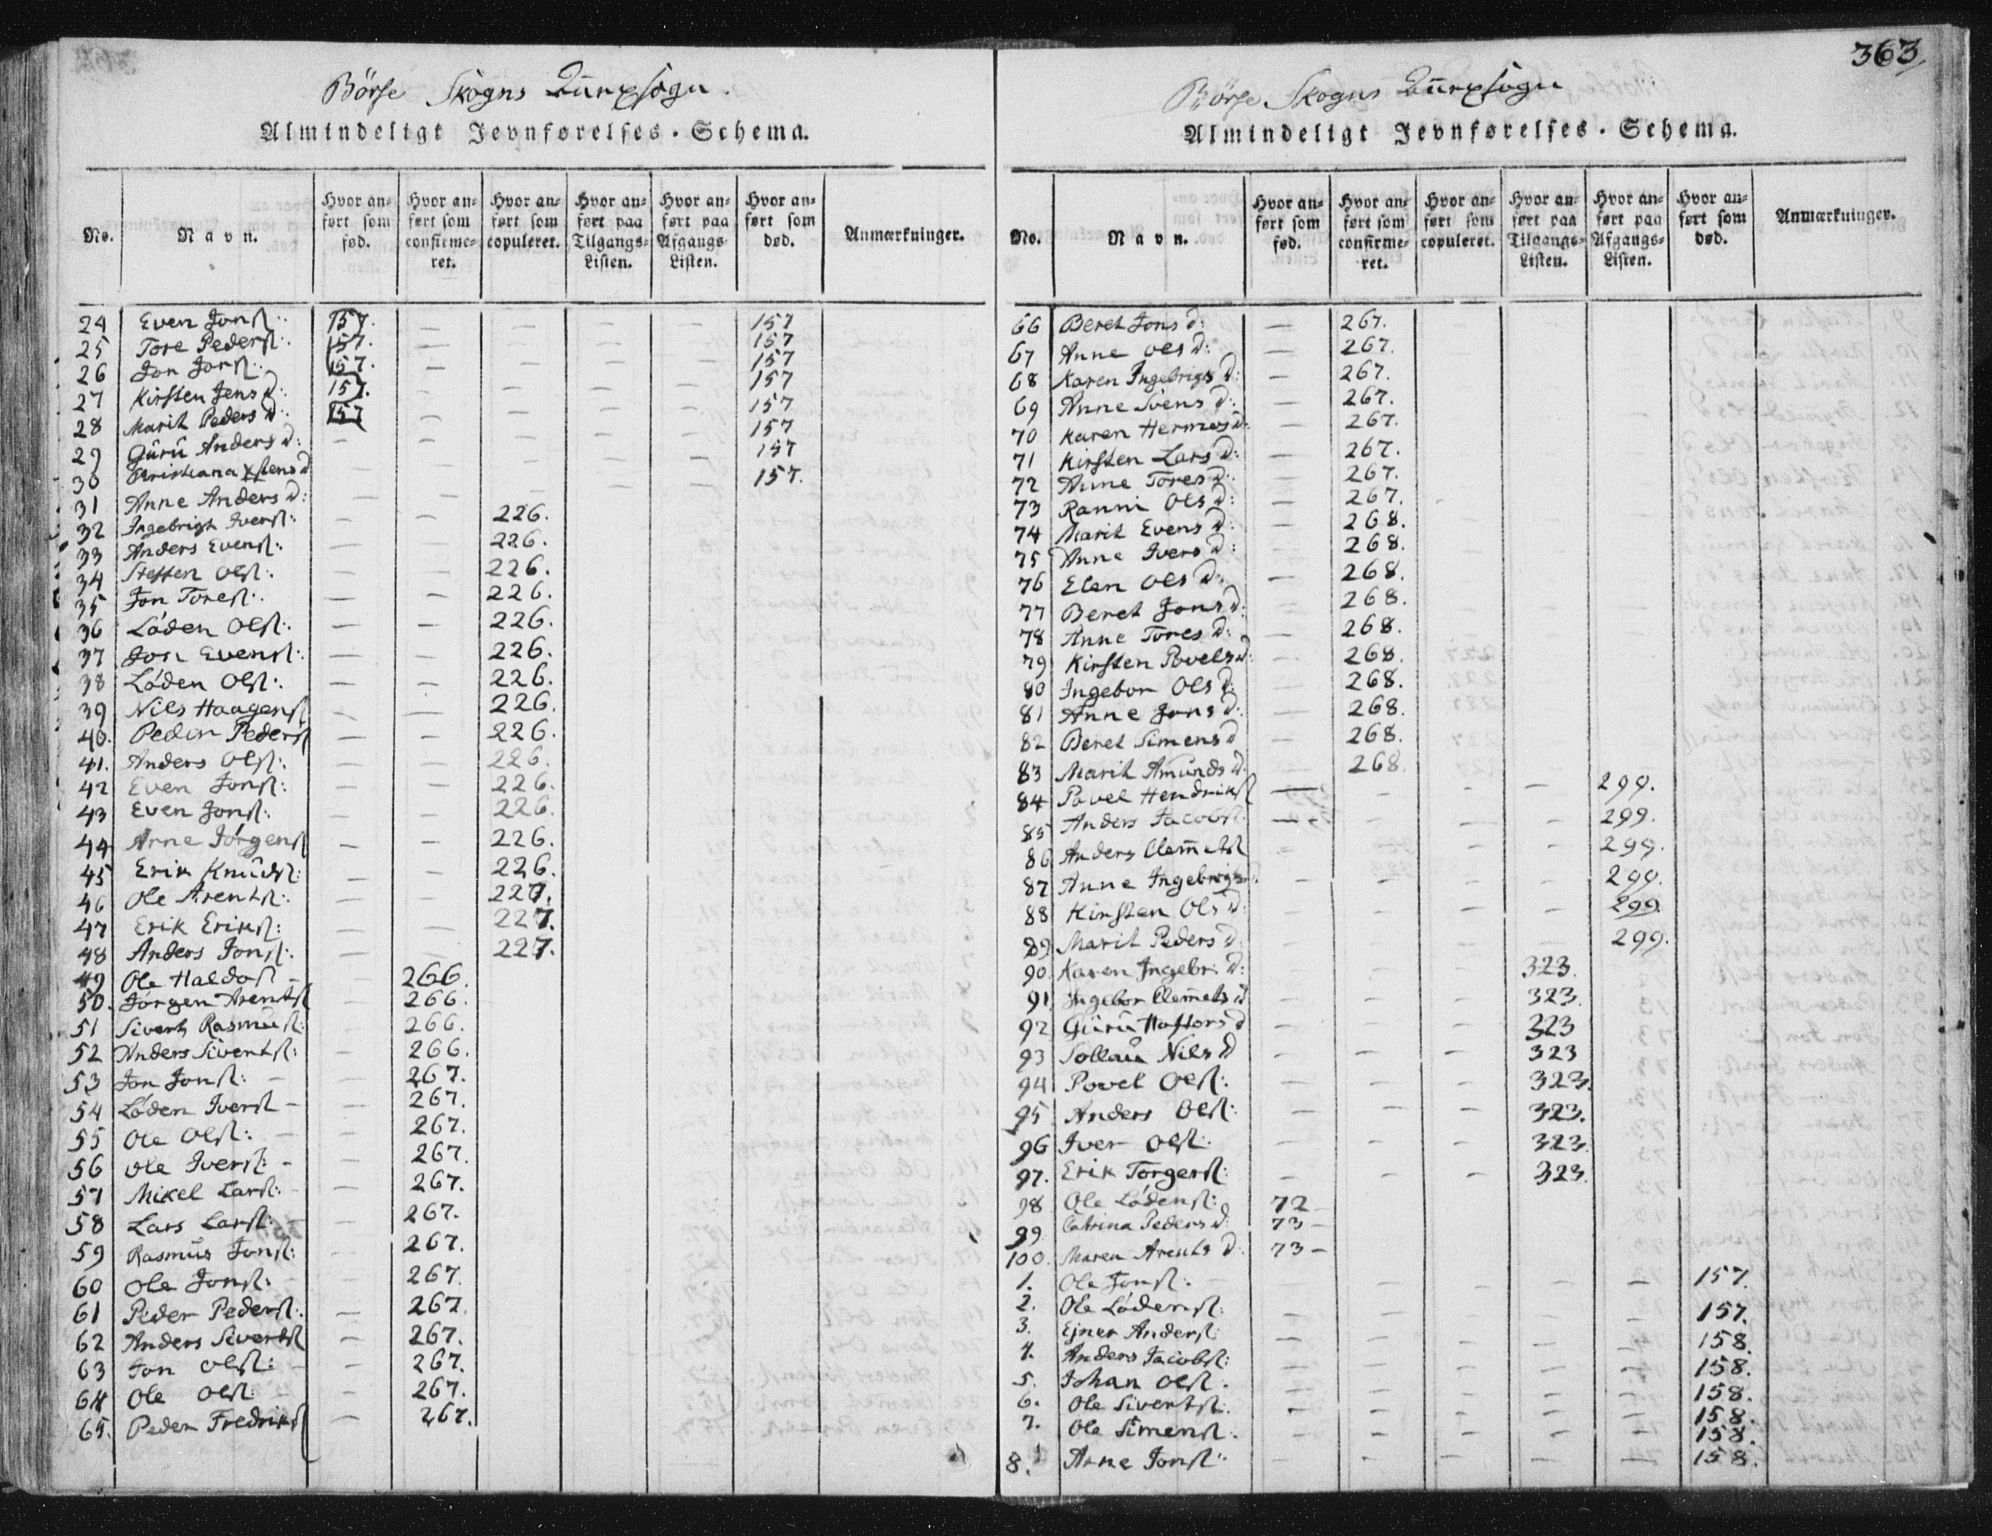 363
Börse Skogns
Almindeligt Jevnførelses-Schema.
No. Navn. Hvor anført som fød. Hvor anført som confirmeret. Hvor anført som copuleret. Hvor anført paa Tilgangs-Listen. Hvor anført paa Afgangs-Listen. Hvor anført som død. Anmærkninger.
24 Even Jonsl: 157. — — — — 157
25 Tore Pedersl: 157. — — — — 157
26 Jon Jonsl: 157. — — — — 157
27 Kirsten Jens d: 157. — — — — 157
28 Marit Peders d: 157 — — — — 157
29 Gürü Anders d: — — — — — 157
30 Christiana Xstens d — — — — — 157
31 Anne Anders d: — — — — — 157.
32 Ingebrigt Iversl: — — 226.
33 Anders Evensl: — — 226.
34 Steffen Olsl: — — 226.
35 Jon Toresl: — — 226.
36 Löden Olsl: — — 226.
37 Jon Evensl: — — 226.
38 Löden Olsl: — — 226.
39 Nils Haagensl — — 226.
40. Peder Pedersl — — 226.
41. Anders Olsl: — — 226.
42 Even Jonsl: — — 226.
43 Even Jonsl: — — 226.
44 Arne Jörgensl — — 226.
45 Erik Knüdsl: — — 226.
46 Ole Arentsl: — — 227.
47 Erik Eriksl: — — 227.
48 Anders Jonsl: — — 227.
49 Ole Haldosl — 266.
50. Jörgen Arentsl — 266.
51 Sivert Rasmusl: — 266.
52 Anders Sivertsl: — 266.
53 Jon Jonsl: — 267.
54 Löden Iversl — 267.
55 Ole Olsl: — 267.
56 Ole Iversl: — 267.
57 Mikel Larsl: — 267.
58 Lars Larsl: — 267.
59 Rasmus Jonsl: — 267.
60 Ole Jonsl: — 267.
61 Peder Pedersl: — 267.
62 Anders Sivertsl — 267.
63 Jon Olsl: — 267.
64 Ole Olsl: — 267.
65. Peder Fredriksl — 267.
Börse Skogns
Almindeligt Jevnførelses-Schema.
No. Navn. Hvor anført som fød. Hvor anført som confirmeret. Hvor anført som copuleret. Hvor anført paa Tilgangs-Listen. Hvor anført paa Afgangs-Listen. Hvor anført som død. Anmærkninger.
66 Beret Jons d: — 267.
67 Anne Ols d: — 267.
68 Karen Ingebrigs d: — 267.
69 Anne Svens d: — 267.
70 Karen Hermos d: — 267.
71 Kirsten Lars d: — 267.
72 Anne Tores d: — 267.
73 Ranni Ols d: — 267.
74 Marit Evens d: — 268.
75 Anne Ivers d: — 268.
76 Elen Ols d: — 268.
77 Beret Jons d: — 268.
78 Anne Tores d: — 268.
79 Kirsten Povels d: — 268.
80 Ingebor Ols d: — 268.
81 Anne Jons d: — 268.
82 Beret Simens d — 268.
83 Marit Amunds d: — 268.
84 Povel Hendriksl — — — — 299.
85 Anders Jacobsl: — — — — 299.
86 Anders Clemetsl — — — — 299.
87 Anne Ingebrigts d. — — — — 299.
88 Kirsten Ols d: — — — — 299.
89 Marit Peders d: — — — — 299.
90. Karen Ingebr: d: — — — 323.
91 Ingebor Clemets d — — — 323.
92 Gürü Haftors d — — — 323
93 Sollaü Nils d — — — 323
94 Povel Olsl: — — — 323.
95. Anders Olsl: — — — 323.
96 Iver Olsl: — — — 323.
97. Erik Torgersl: — — — 323.
98 Ole Lödensl: 72 —
99 Catrina Peders d: 73 —
100. Maren Arents d: 73 —
1. Ole Jonsl: — — — — — 157.
2. Ole Lödensl: — — — — — 157.
3. Ejner Andersl: — — — — — 158.
4. Anders Jacobsl: — — — — — 158.
5. Johan Olsl. — — — — — 158.
6. Ole Sivertsl: — — — — — 158.
7. Ole Simensl: — — — — — 158.
8. Arne Jonsl: — — — — — 158.